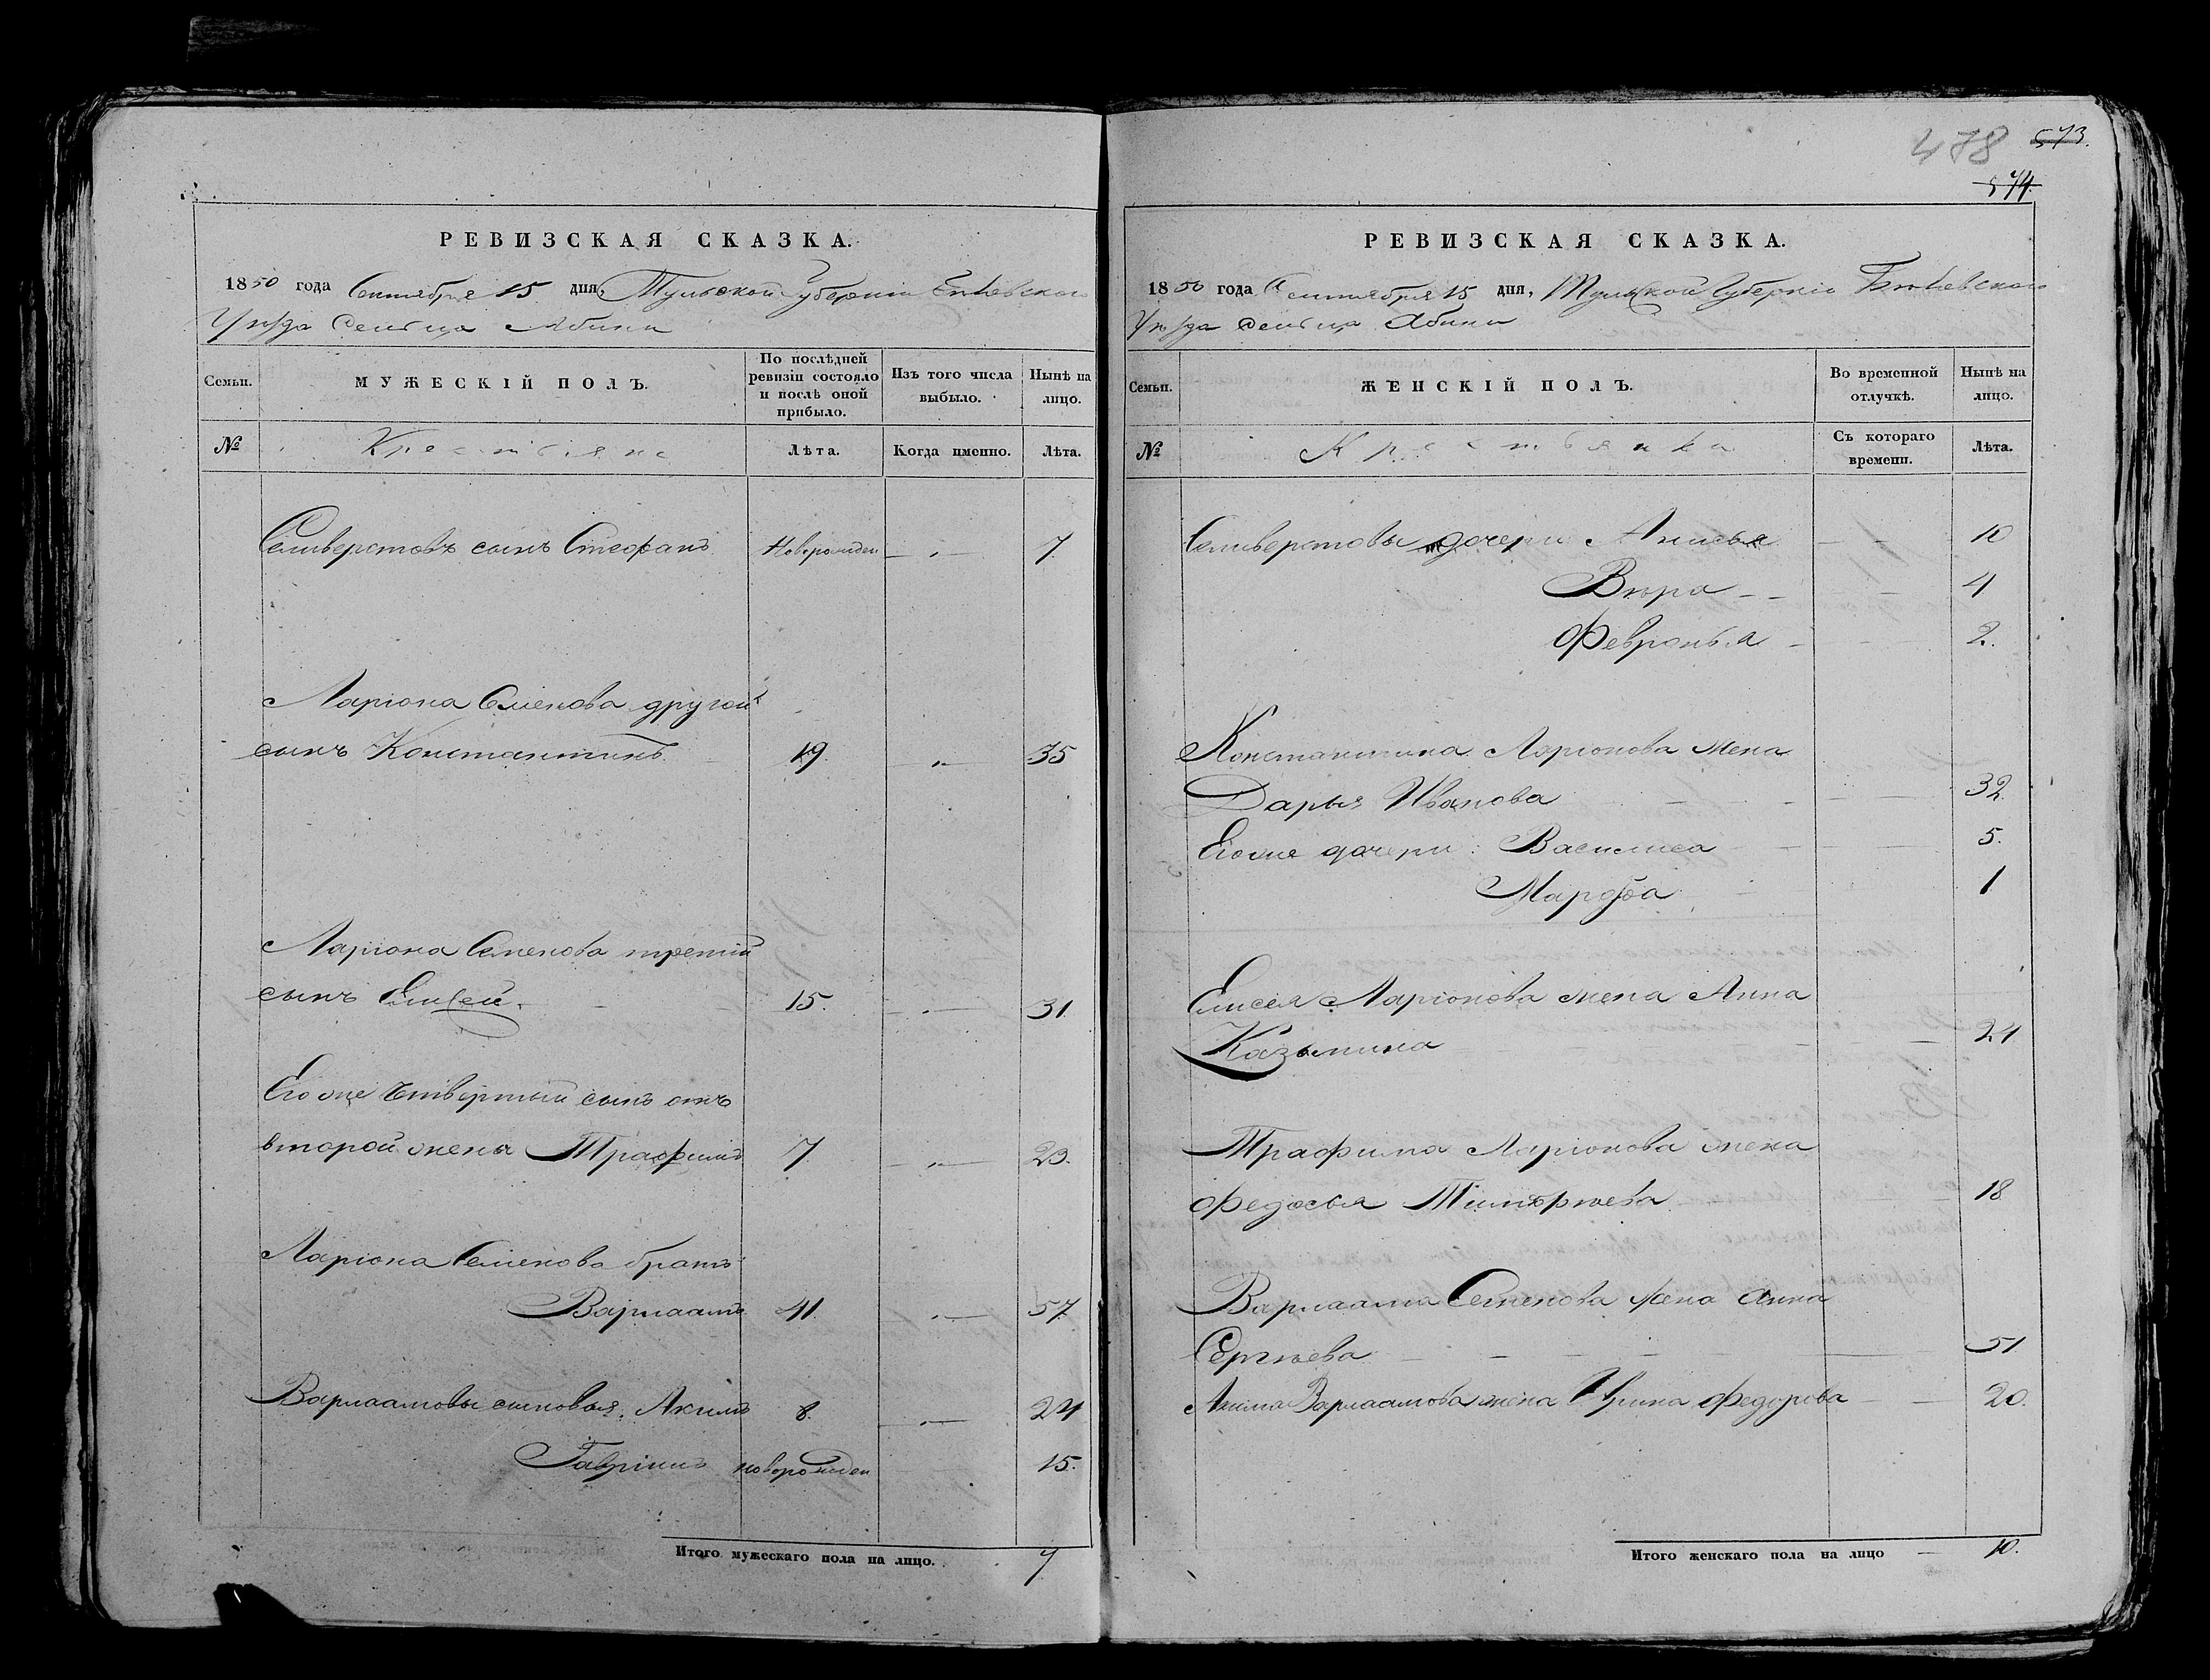 РЕВИЗСКАЯ СКАЗКА.
1850 года Сентября 15 дня, Тульской Губерніи Бѣлевскаго
Уѣзда Сельца Абина
Семьи.
МУЖЕСКІЙ ПОЛЪ.
По послѣдней ревизіи состояло и послѣ оной прибыло.
Изъ того числа выбыло.
Нынѣ на лицо.
№ Крестьяне Лѣта. Когда именно. Лѣта.
Селиверстовъ сынъ Стефанъ новорожден — 7
Ларіона Семенова другой
сынъ Константинъ 19. — 35
Ларіона Семенова третій
сынъ Елисей. 15. — 31
Его же четвертый сынъ отъ
второй жены Трафимъ 7 — 23.
Ларіона Семенова братъ
Варлаамъ 41. — 57
Варлаамовы сыновья, Акимъ 8. — 24
Гавріилъ новорожден 15.
Итого мужескаго пола на лицо. 7
478 573.
574.
РЕВИЗСКАЯ СКАЗКА.
1850 года Сентября 15 дня, Тульской Губерніи Бѣлевскаго
Уѣзда Сельца Абина
Семьи.
ЖЕНСКІЙ ПОЛЪ.
Во временной отлучкѣ.
Нынѣ на лицо.
№ Крестьянка Съ котораго времени. Лѣта.
Селиверстовы дочери Анисья 10
Вѣра 4
Февронья 2.
Константина Ларіонова жена
Дарья Иванова 32.
Его же дочери: Василиса 5.
Марфа 1
Елисея Ларіонова жена Анна
Казьмина 24
Трафима Ларіонова жена
Федосья Тимофѣева 18
Варлаама Семенова жена Анна
Сергѣева 51
Акима Варлаамова жена Ирина Федорова 20.
Итого женскаго пола на лицо — 10.